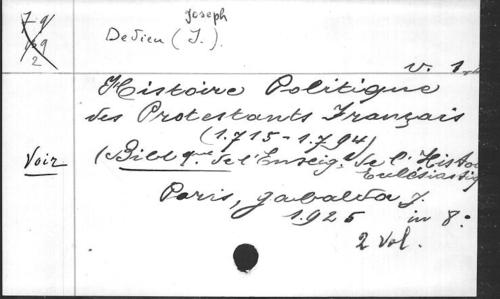 Joseph
Dedieu (J.).
v. 1
Histoire Politique
des Protestants Français
(1.715-1.794)
Voir
(Bibl que de l'Enseig. de l'Histoi
Ecclésiastiq
Paris, gabalda J.
1.925 in 8:
2 Vol.